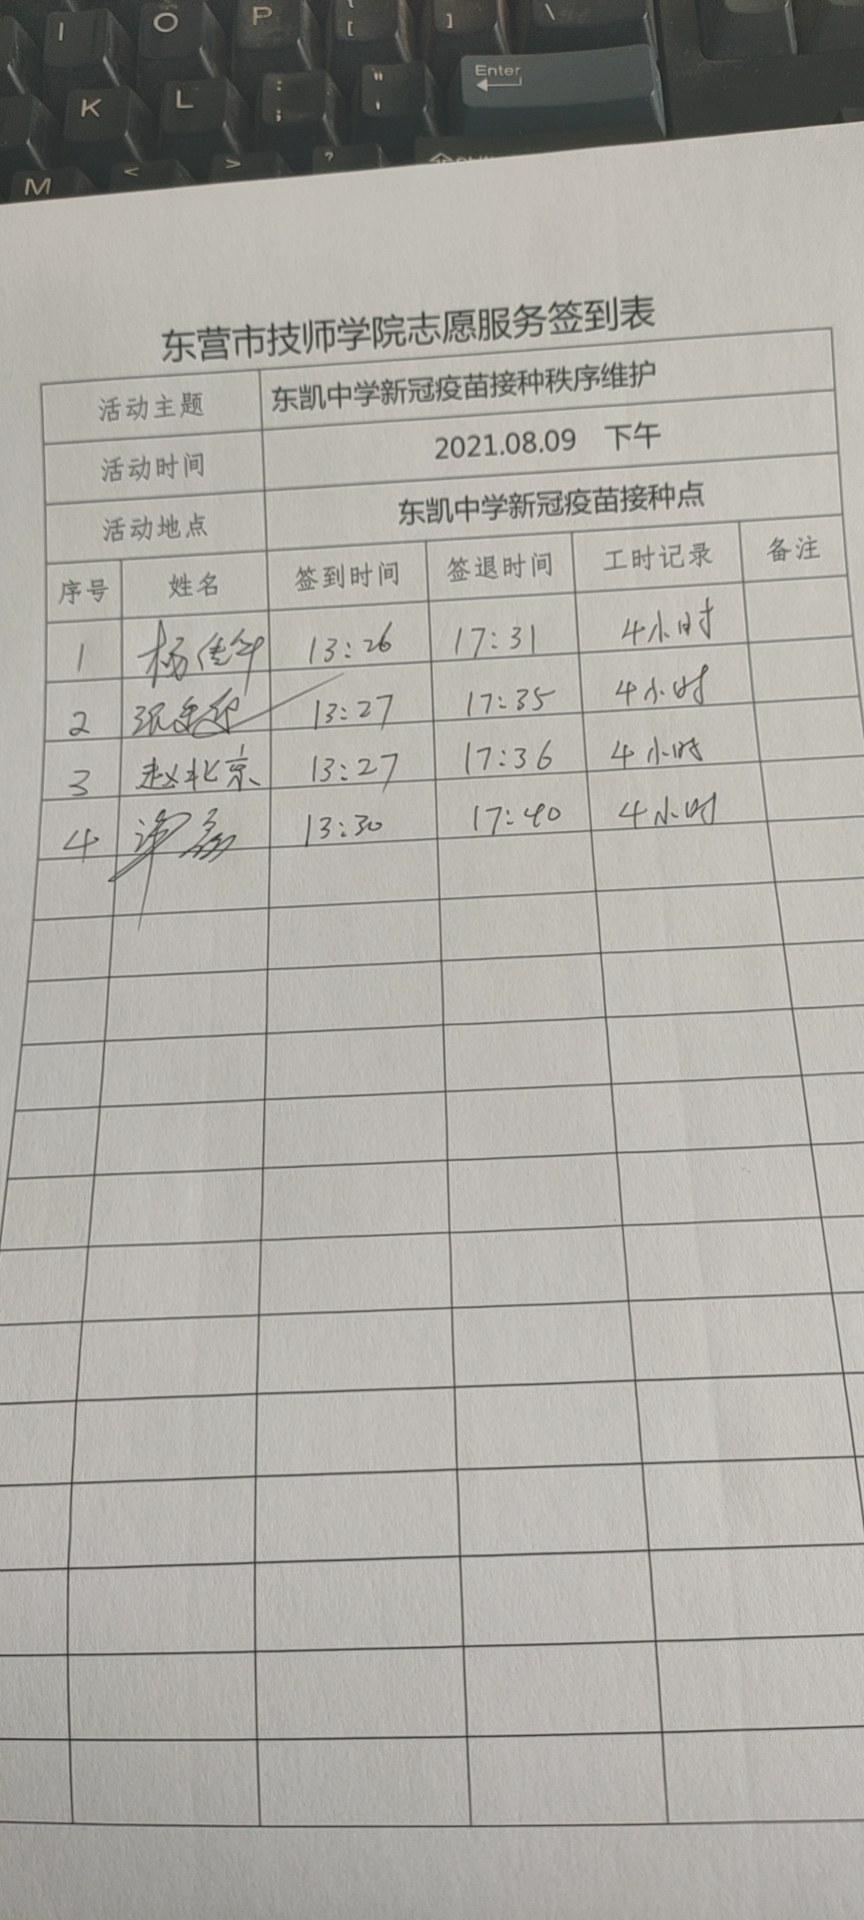 I O P [ ] \
K L : ; " ' Enter
M < > ?
东营市技师学院志愿服务签到表
活动主题 东凯中学新冠疫苗接种秩序维护
活动时间 2021.08.09 下午
活动地点 东凯中学新冠疫苗接种点
序号 姓名 签到时间 签退时间 工时记录 备注
1 杨佳华 13:26 17:31 4小时
2 13:27 17:35 4小时
3 赵北京 13:27 17:36 4小时
4 13:30 17:40 4小时